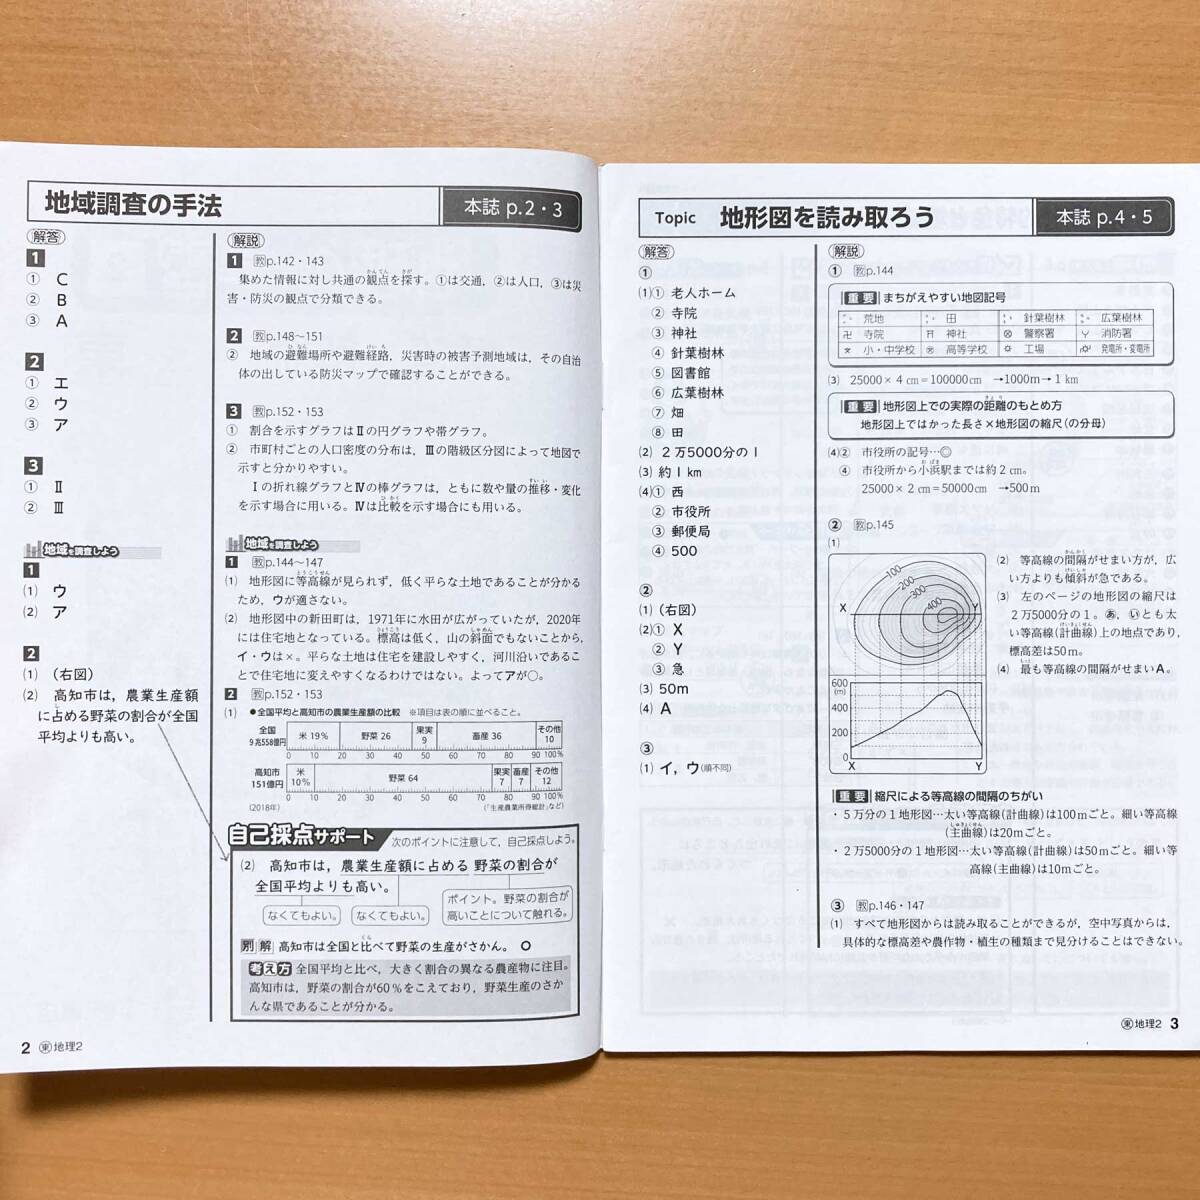 地域調査の手法
本誌 p.2・3
解答
1
① C
② B
③ A
2
① エ
② ウ
③ ア
3
① Ⅱ
② Ⅲ
地域を調査しよう
1
(1) ウ
(2) ア
2
(1) (右図)
(2) 高知市は，農業生産額
に占める野菜の割合が全国
平均よりも高い。
解説
1 教p.142・143
集めた情報に対し共通の観点を探す。①は交通，②は人口，③は災
害・防災の観点で分類できる。
2 教p.148～151
② 地域の避難場所や避難経路，災害時の被害予測地域は，その自治
体の出している防災マップで確認することができる。
3 教p.152・153
① 割合を示すグラフはⅡの円グラフや帯グラフ。
② 市町村ごとの人口密度の分布は，Ⅲの階級区分図によって地図で
示すと分かりやすい。
Ⅰの折れ線グラフとⅣの棒グラフは，ともに数や量の推移・変化
を示す場合に用いる。Ⅳは比較を示す場合にも用いる。
地域を調査しよう
1 教p.144～147
(1) 地形図に等高線が見られず，低く平らな土地であることが分かる
ため，ウが適さない。
(2) 地形図中の新田町は，1971年に水田が広がっていたが，2020年
には住宅地となっている。標高は低く，山の斜面でもないことから，
イ・ウは×。平らな土地は住宅を建設しやすく，河川沿いであるこ
とで住宅地に変えやすくなるわけではない。よってアが○。
2 教p.152・153
(1) ●全国平均と高知市の農業生産額の比較 ※項目は表の順に並べること。
全国
9兆558億円
米 19% 野菜 26 果実 9 畜産 36 その他 10
0 10 20 30 40 50 60 70 80 90 100%
高知市
151億円
米 10% 野菜 64 果実 7 畜産 7 その他 12
0 10 20 30 40 50 60 70 80 90 100%
(2018年) (「生産農業所得統計」など)
自己採点サポート 次のポイントに注意して，自己採点しよう。
(2) 高知市は，農業生産額に占める 野菜の割合が
全国平均よりも高い。
なくてもよい。 なくてもよい。
ポイント。野菜の割合が
高いことについて触れる。
別解 高知市は全国と比べて野菜の生産がさかん。 ○
考え方 全国平均と比べ，大きく割合の異なる農産物に注目。
高知市は，野菜の割合が60％をこえており，野菜生産のさか
んな県であることが分かる。
2 東地理2
Topic 地形図を読み取ろう
本誌 p.4・5
解答
①
(1)① 老人ホーム
② 寺院
③ 神社
④ 針葉樹林
⑤ 図書館
⑥ 広葉樹林
⑦ 畑
⑧ 田
(2) 2万5000分の1
(3) 約1km
(4)① 西
② 市役所
③ 郵便局
④ 500
②
(1) (右図)
(2)① X
② Y
③ 急
(3) 50m
(4) A
③
(1) イ，ウ(順不同)
解説
① 教p.144
重要 まちがえやすい地図記号
荒地 田 針葉樹林 広葉樹林
寺院 神社 警察署 消防署
小・中学校 高等学校 工場 発電所・変電所
(3) 25000×4cm＝100000cm →1000m→1km
重要 地形図上での実際の距離のもとめ方
地形図上ではかった長さ×地形図の縮尺(の分母)
(4)② 市役所の記号…◎
④ 市役所から小浜駅までは約2cm。
25000×2cm＝50000cm →500m
② 教p.145
(1)
100
200
300
400
X Y
600
(m)
400
200
0
X Y
(2) 等高線の間隔がせまい方が，広
い方よりも傾斜が急である。
(3) 左のページの地形図の縮尺は
2万5000分の1。あ，いとも太
い等高線(計曲線)上の地点であり，
標高差は50m。
(4) 最も等高線の間隔がせまいA。
重要 縮尺による等高線の間隔のちがい
・5万分の1地形図…太い等高線(計曲線)は100mごと。細い等高線
(主曲線)は20mごと。
・2万5000分の1地形図…太い等高線(計曲線)は50mごと。細い等
高線(主曲線)は10mごと。
③ 教p.146・147
(1) すべて地形図からは読み取ることができるが，空中写真からは，
具体的な標高差や農作物・植生の種類まで見分けることはできない。
東地理2 3